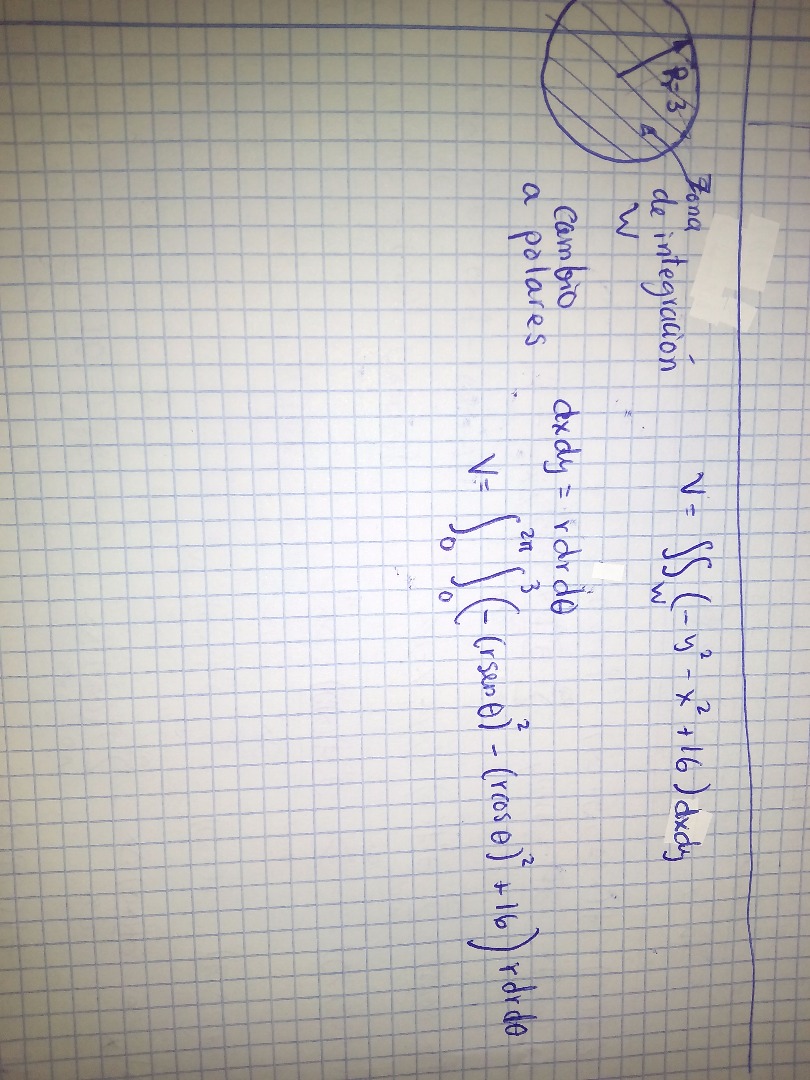 R=3
Zona
de integración
W
V = ∬_W (-y² - x² + 16) dxdy
Cambio
a polares
dxdy = r dr dθ
V = ∫₀^2π ∫₀^3 (-(r sen θ)² - (r cos θ)² + 16) r dr dθ